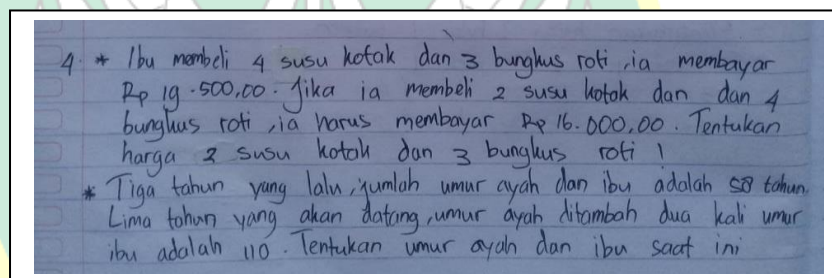 4. * Ibu membeli 4 susu kotak dan 3 bungkus roti, ia membayar
Rp 19.500,00. Jika ia membeli 2 susu kotak dan dan 4
bungkus roti, ia harus membayar Rp 16.000,00. Tentukan
harga 2 susu kotak dan 3 bungkus roti !
* Tiga tahun yang lalu, jumlah umur ayah dan ibu adalah 58 tahun.
Lima tahun yang akan datang, umur ayah ditambah dua kali umur
ibu adalah 110. Tentukan umur ayah dan ibu saat ini